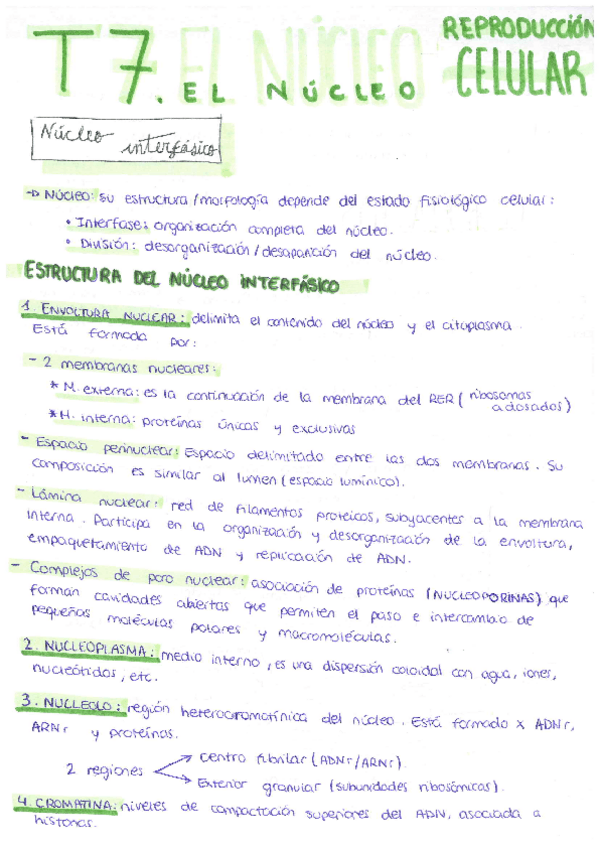 T7. EL NÚCLEO
REPRODUCCIÓN
CELULAR
Núcleo interfásico
→ NÚCLEO: su estructura/morfología depende del estado fisiológico celular:
• Interfase: organización completa del núcleo.
• División: desorganización/desaparición del núcleo.
ESTRUCTURA DEL NÚCLEO INTERFÁSICO
1. ENVOLTURA NUCLEAR: delimita el contenido del núcleo y el citoplasma.
Está formada por:
- 2 membranas nucleares:
* M. externa: es la continuación de la membrana del RER (ribosomas
adosados)
* M. interna: proteínas únicas y exclusivas
- Espacio perinuclear: Espacio delimitado entre las dos membranas. Su
composición es similar al lumen (espacio lumínico).
- Lámina nuclear: red de filamentos proteicos, subyacentes a la membrana
interna. Participa en la organización y desorganización de la envoltura,
empaquetamiento de ADN y replicación de ADN.
- Complejos de poro nuclear: asociación de proteínas (NUCLEOPORINAS) que
forman cavidades abiertas que permiten el paso e intercambio de
pequeñas moléculas polares y macromoléculas.
2. NUCLEOPLASMA: medio interno, es una dispersión coloidal con agua, iones,
nucleótidos, etc.
3. NUCLEOLO: región heterocromatínica del núcleo. Está formado x ADNr,
ARNr y proteínas.
2 regiones
→ centro fibrilar (ADNr/ARNr)
→ Exterior granular (subunidades ribosómicas).
4. CROMATINA: niveles de compactación superiores del ADN, asociada a
histonas.